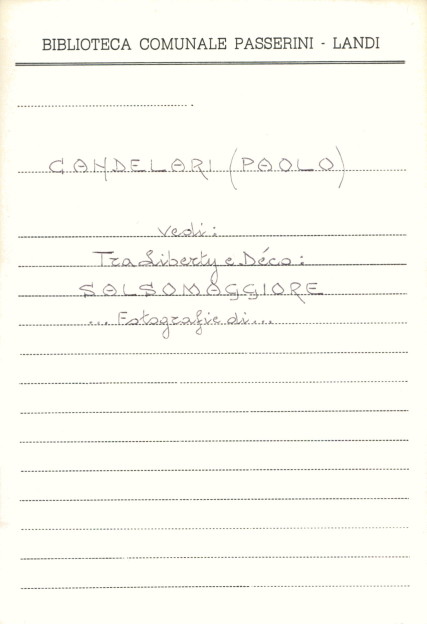 BIBLIOTECA COMUNALE PASSERINI - LANDI
CANDELARI (PAOLO)
Vedi:
Tra Liberty e Déco:
SALSOMAGGIORE
... Fotografie di...